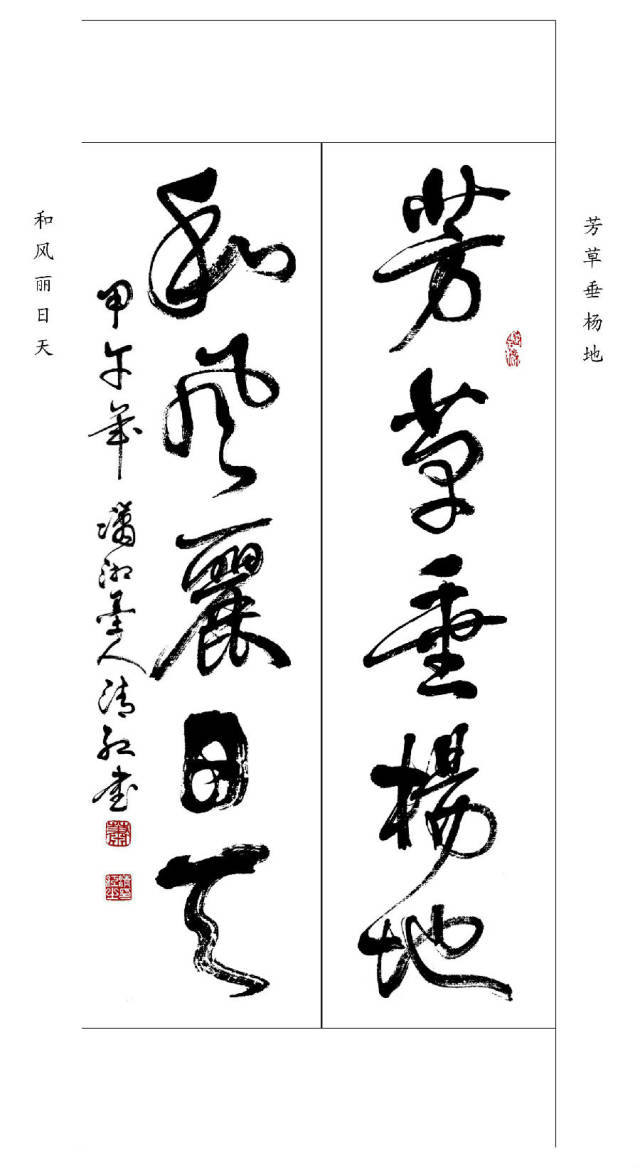 芳草垂杨地
芳草垂楊地
和风丽日天
和風麗日天
甲午年 瀟湘墨人清红书